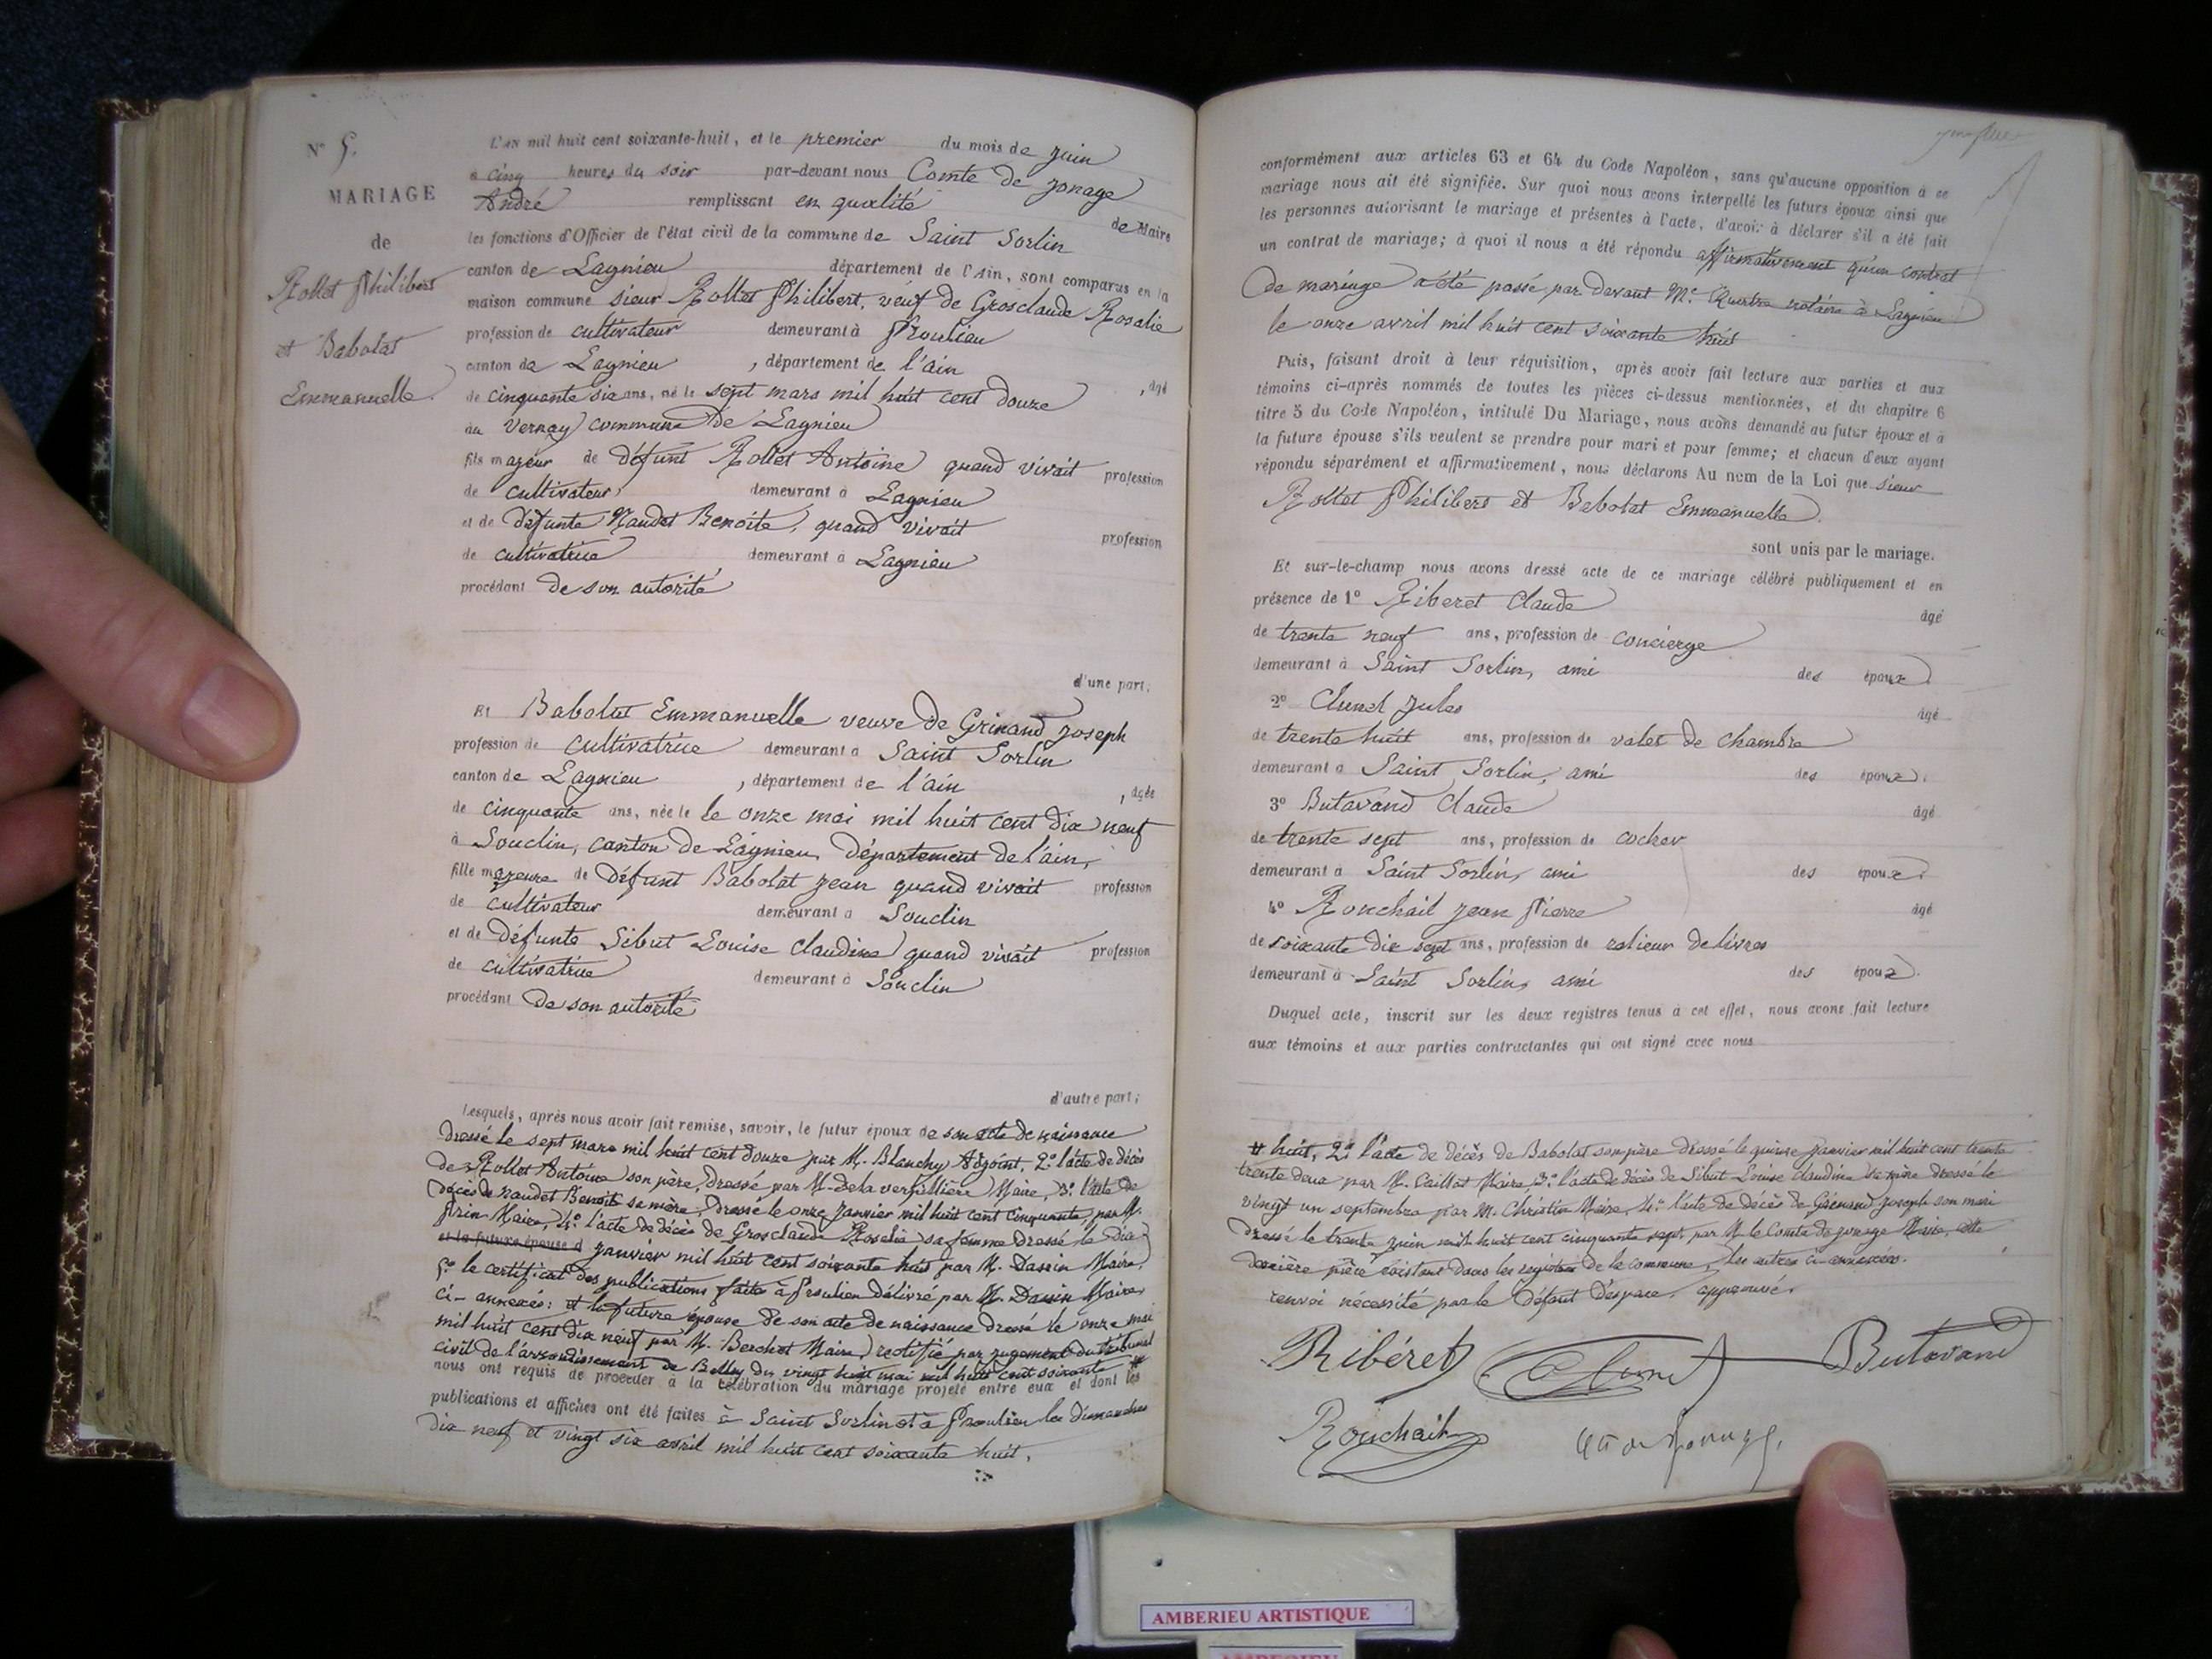 N° 5.
MARIAGE
de
Rollet Philibert
et Babolat
Emmanuelle.
L'AN mil huit cent soixante-huit, et le premier du mois de juin
a cinq heures du soir par-devant nous Comte de Jonage
André remplissant en qualité de Maire
les fonctions d'Officier de l'état civil de la commune de Saint Sorlin
canton de Lagnieu département de l'Ain, sont comparus en la
maison commune sieur Rollet Philibert, veuf de Grosclaude Rosalie
profession de cultivateur demeurant à Proulieu
canton de Lagnieu, département de l'ain, âgé
de cinquante six ans, né le sept mars mil huit cent douze
au Vernay commune de Lagnieu
fils majeur de défunt Rollet Antoine quand vivait profession
de cultivateur demeurant à Lagnieu
et de défunte Naudet Benoite, quand vivait profession
de cultivatrice demeurant à Lagnieu
procédant de son autorité
d'une part;
Et Babolat Emmanuelle veuve de Grinand Joseph
profession de cultivatrice demeurant à Saint Sorlin
canton de Lagnieu, département de l'ain, âgée
de cinquante ans, née le le onze mai mil huit cent dix neuf
à Souclin, canton de Lagnieu, département de l'ain,
fille majeure de défunt Babolat Jean quand vivait profession
de cultivateur demeurant à Souclin
et de défunte Sibut Louise Claudine quand vivait profession
de cultivatrice demeurant à Souclin
procédant de son autorité
d'autre part;
Lesquels, après nous avoir fait remise, savoir, le futur époux de son acte de naissance
dressé le sept mars mil huit cent douze par M. Blanchy Adjoint, 2° l'acte de décès
de Rollet Antoine son père, dressé par M. dela verpillière Maire, 3° l'acte de
décès de Naudet Benoite sa mère, dressé le onze janvier mil huit cent cinquante, par M.
Prin Maire, 4° l'acte de décès de Grosclaude Rosalie sa femme dressé le dix
et la future épouse d janvier mil huit cent soixante huit par M. Dassin Maire,
5° le certificat des publications faites à Proulieu délivré par M. Dassin Maire,
ci-annexés: et la future épouse de son acte de naissance dressé le onze mai
mil huit cent dix neuf par M. Berchet Maire rectifié par jugement du tribunal
civil de l'arrondissement de Belley du vingt huit mai mil huit cent soixante #
nous ont requis de procéder à la célébration du mariage projeté entre eux et dont les
publications et affiches ont été faites à Saint Sorlin et à Proulieu les dimanches
dix neuf et vingt six avril mil huit cent soixante huit.
conformément aux articles 63 et 64 du Code Napoléon, sans qu'aucune opposition à ce
mariage nous ait été signifiée. Sur quoi nous avons interpellé les futurs époux ainsi que
les personnes autorisant le mariage et présentes à l'acte, d'avoir à déclarer s'il a été fait
un contrat de mariage; à quoi il nous a été répondu affirmativement qu'un contrat
de mariage a été passé par devant Me. notaire à Lagnieu
le onze avril mil huit cent soixante huit
Puis, faisant droit à leur réquisition, après avoir fait lecture aux parties et aux
témoins ci-après nommés de toutes les pièces ci-dessus mentionnées, et du chapitre 6
titre 5 du Code Napoléon, intitulé Du Mariage, nous avons demandé au futur époux et à
la future épouse s'ils veulent se prendre pour mari et pour femme; et chacun d'eux ayant
répondu séparément et affirmativement, nous déclarons Au nom de la Loi que sieur
Rollet Philibert et Babolat Emmanuelle.
sont unis par le mariage.
Et sur-le-champ nous avons dressé acte de ce mariage célébré publiquement et en
présence de 1° Riberet Claude âgé
de trente neuf ans, profession de concierge
demeurant à Saint Sorlin, ami des époux.
2° Clunet Jules âgé
de trente huit ans, profession de valet de chambre
demeurant à Saint Sorlin, ami des époux.
3° Butavand Claude âgé
de trente sept ans, profession de cocher
demeurant à Saint Sorlin, ami des époux.
4° Ronchail Jean Pierre âgé
de soixante dix sept ans, profession de relieur de livres
demeurant à Saint Sorlin, ami des époux.
Duquel acte, inscrit sur les deux registres tenus à cet effet, nous avons fait lecture
aux témoins et aux parties contractantes qui ont signé avec nous
# huit, 2° l'acte de décès de Babolat son père dressé le quinze janvier mil huit cent trente
trente deux par M. Caillat Maire, 3° l'acte de décès de Sibut Louise Claudine sa mère dressé le
vingt un septembre par M. Christin Maire, 4° l'acte de décès de Grinand Joseph son mari
dressé le trente juin mil huit cent cinquante sept, par M. le Comte de Jonage Maire, cette
dernière pièce existant dans les registres de la commune, les autres ci-annexées.
renvoi nécessité par le défaut d'espace, approuvé.
Ribéret Clunet Butavand
Ronchail Cte de Jonage,
AMBERIEU ARTISTIQUE
AMBERIEU